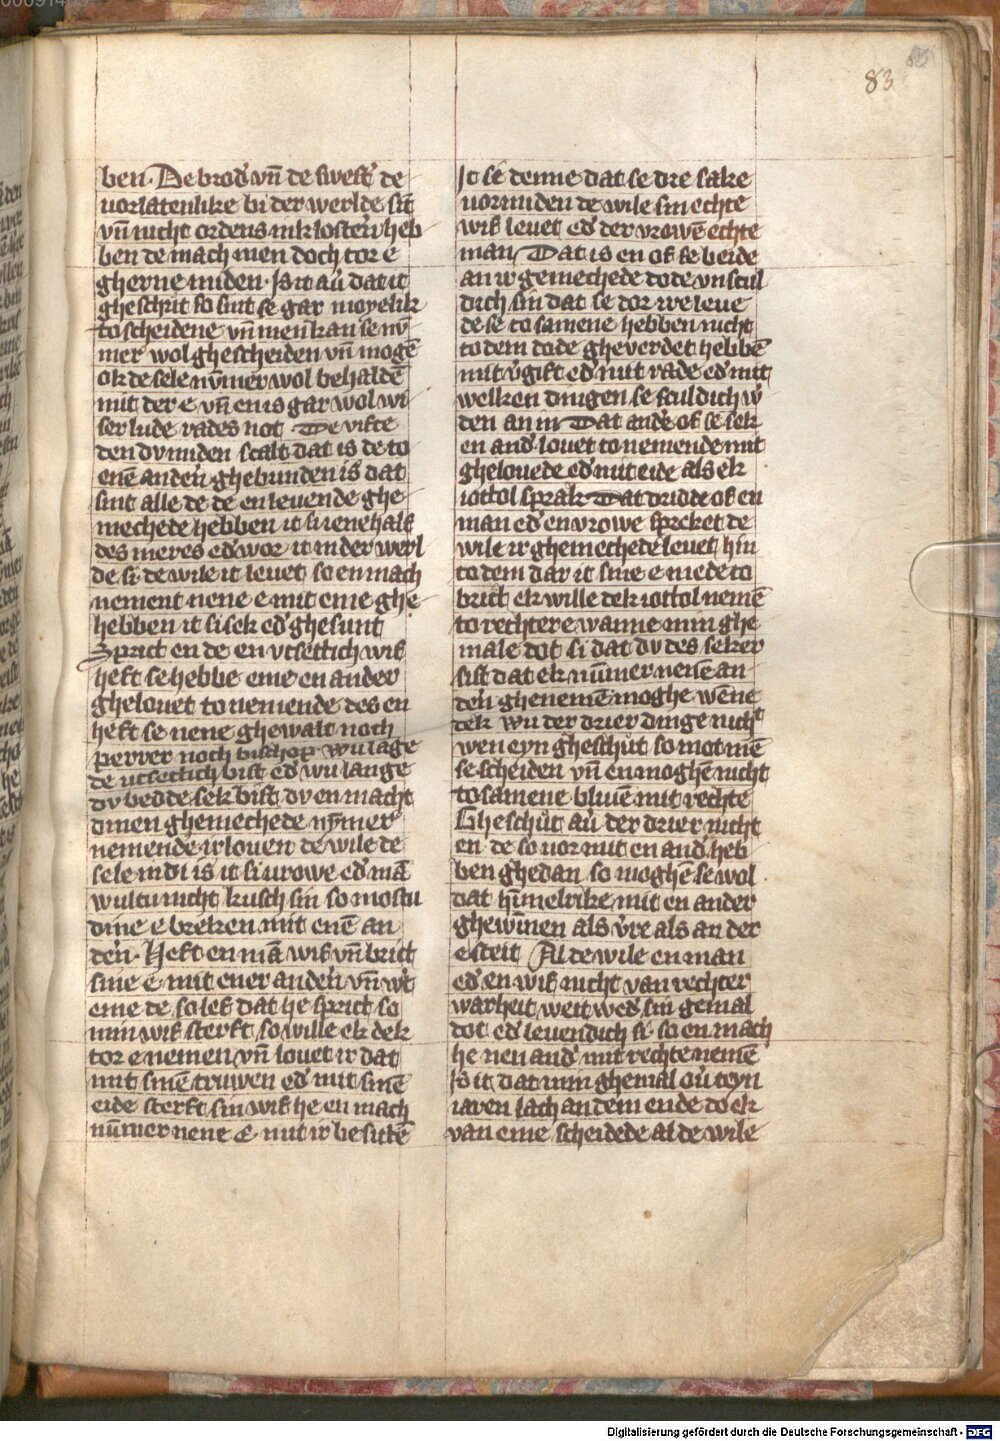 83
ben. De brod' vn̄ de swest' de
uorlatenlike bi der werlde sīt
vn̄ nicht ordens in klostern heb
ben de mach men doch tor e
gherne miden. Is it au' dat it
gheschut so sint se gar moyelik
to scheidene vn̄ men kan se nv̄
mer wol ghescheiden vn̄ mogē
ok de sele nv̄mer wol behaldē
mit der e vn̄ en is gar wol wi
ser lude rades not De vifte
den du miden scalt dat is de to
enē andern ghebunden is dat
sint alle de de en leuende ghe
mechede hebben it si iene half
des meres ed' wor it in der werl
de si de wile it leuet so en mach
nement nene e mit eme ghe
hebben it si sek ed' ghesunt
Sprict en de en vtsettich wif
heft se hebbe eme en ander
ghelouet to nemende des en
heft se nene ghewalt noch
perrer noch bischop wu lage
de vtsettich bist ed' wu lange
dv bedde sek bist dv en macht
dinen ghemechede nȳmer
nemende irlouen de wile de
sele in di is it si vrowe ed' mā
wultu nicht kusch sin so mostu
dine e breken mit enē an
dern. Heft en mā wif vn̄ brict
sine e mit ener andern vn̄ w't
eme de so lef dat he sprict so
min wif sterft so wille ek dek
tor e nemen vn̄ louet ir dat
mit sinē truwen ed' mit sinē
eide sterft sin wif he en mach
nūmer nene e mit ir besittē
It se denne dat se dre sake
uormiden de wile sin echte
wif leuet ed' der vrowē echte
man Dat is en of se beide
an ir gemechede dode vnscul
dich sin dat se dor ire leue
de se to samene hebben nicht
to dem dode gheverdet hebbē
mit v'gift ed' mit rade ed' mit
welken dingen se sculdich w'
den an in Dat and'e of se sek
en and' louet to nemende mit
ghelouede ed' mit eide als ek
iottol sprak Dat dridde of en
man ed' en vrowe spreket de
wile ir ghemechede leuet hin
to dem dar it sine e mede to
brict ek wille dek iottol nemē
to rechter e wanne min ghe
male dot si dat dv des seker
sist dat ek nūmer nenē an
dern ghenemē moghe wēne
dek wu der drier dinge nicht
wen eyn gheschut so mot mē
se scheiden vn̄ en moghē nicht
to samene bliuē mit rechte
Gheschut au' der drier nicht
en de so uor mit en and' heb
ben ghedan so moghē se wol
dat hīmelrike mit en ander
ghewinnen als v're als an der
e steit Al de wile en man
ed' en wif nicht van rechter
warheit weit wed' sin gemal
dot ed' leuendich si so en mach
he nen and' mit rechte nemē
Is it dat min ghemal ou' teyn
iaren lach an dem ende do ek
van eme scheidede al de wile
Digitalisierung gefördert durch die Deutsche Forschungsgemeinschaft - DFG